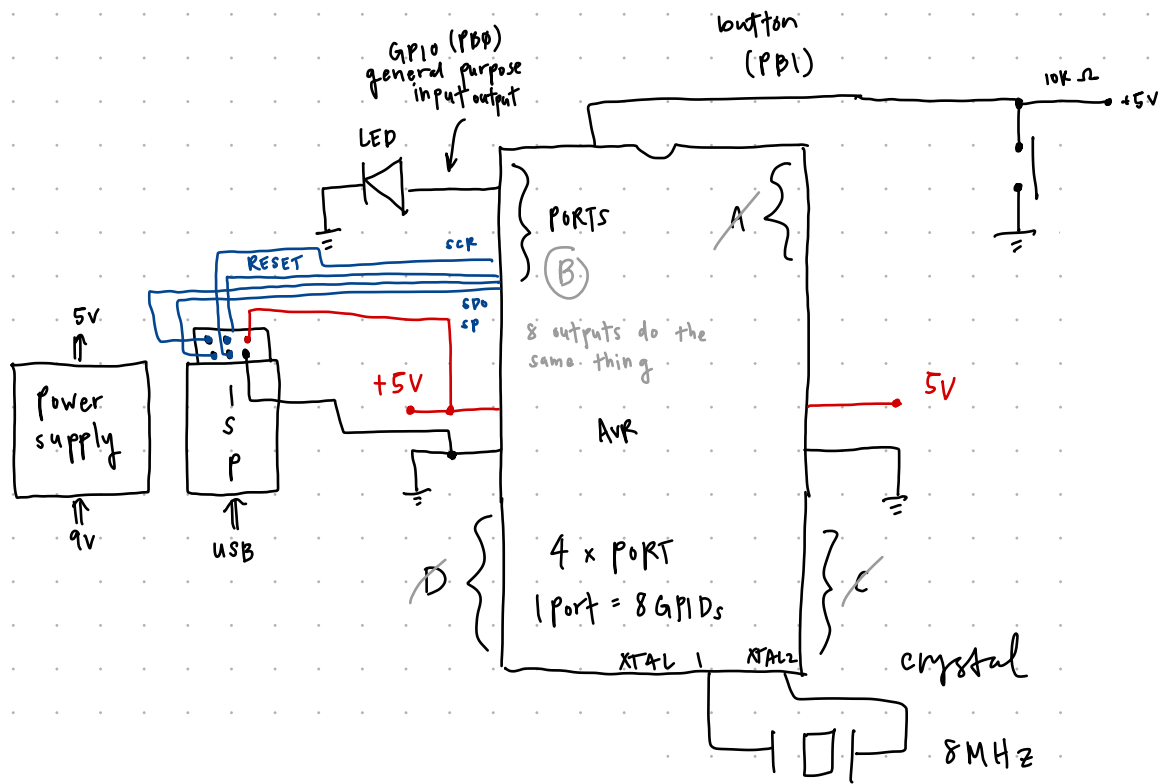 button
(PB1)
GPIO (PB0)
general purpose
input output
10K Ω
+5V
LED
PORTS
A
B
SCR
RESET
SDO
SP
8 outputs do the
same thing
5V
power
supply
9V
ISP
USB
+5V
5V
AVR
D
4 x PORT
1 port = 8 GPIDs
C
XTAL 1
XTAL2
crystal
8 MHz